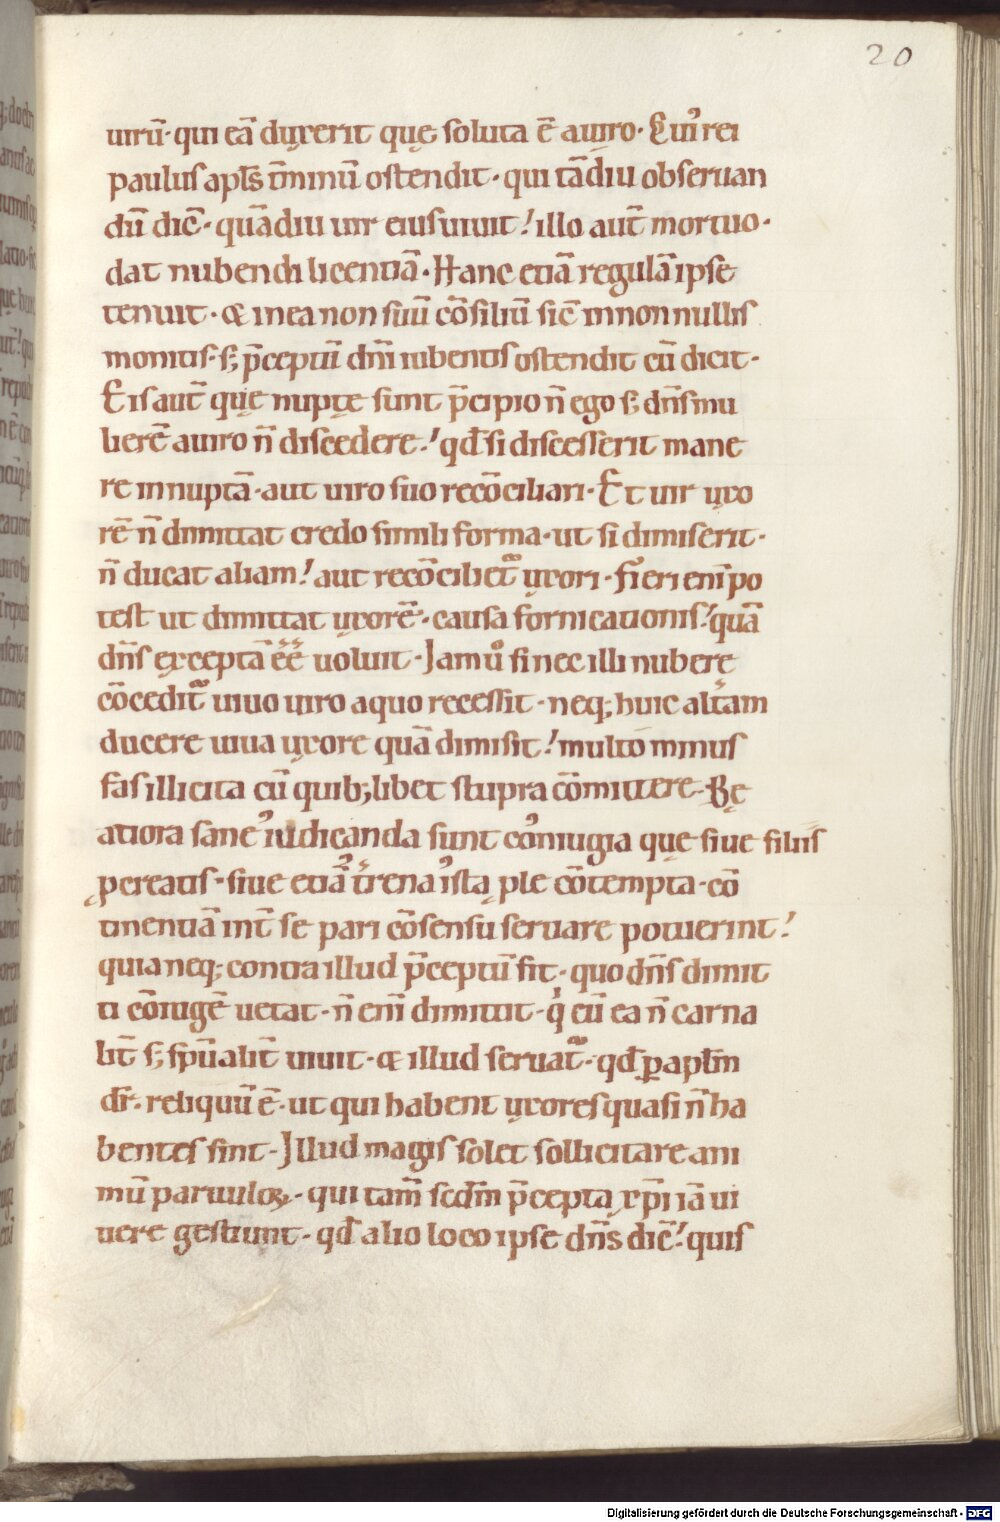 20
uirū· qui eā duxerit quę soluta ē a uiro· Cui' rei
paulus apl̄s t̄minū ostendit· qui tādiu obseruan
dū dic̄· quādiu uir eius uiuit! illo aut̄ mortuo·
dat nubendi licentiā· Hanc etiā regulā ipse
tenuit· & in ea non suū cōsiliū sic̄ in non nullis
monitis· s; p̄ceptū dn̄i iubentis ostendit cū dicit·
Eis aut̄ quę nuptę sunt p̄cipio n̄ ego s; dn̄s mu
lierē a uiro n̄ discedere! qd̄ si discesserit mane
re innuptā· aut uiro suo recōciliari· Et uir uxo
rē n̄ dimittat credo simili forma· ut si dimiserit·
n̄ ducat aliam! aut recōciliet᷑ uxori· Fieri enī po
test ut dimittat uxorē· causa fornicationis! quā
dn̄s exceptā eē uoluit· Jam ů si nec illi nuberę
cōcedit᷑ uiuo uiro a quo recessit· neq; huic alt̄am
ducere uiua uxore quā dimisit! multo minus
fas illicita cū quib; libet stupra cōmittere· Bę
atiora sane iudicanda sunt coniugia quę siue filiis
pcreatis· siue etiā t̄rena ista ple cōtempta· cō
tinentiā int̄ se pari cōsensu seruare potuerint!
quia neq; contra illud p̄ceptū fit· quo dn̄s dimit
ti cōiugē uetat· n̄ enī dimittit· q' cū ea n̄ carna
lit̄ s; sp̄ualit̄ uiuit· & illud seruat᷑· qd̄ p apl̄m
dr̄· reliquū ē· ut qui habent uxores quasi n̄ ha
bentes sint· Jllud magis solet sollicitare ani
mū paruuloꝝ· qui tam̄ scd̄m p̄cepta xp̄i iā ui
uere gestiunt· qd̄ alio loco ipse dn̄s dic̄! quis
Digitalisierung gefördert durch die Deutsche Forschungsgemeinschaft - DFG